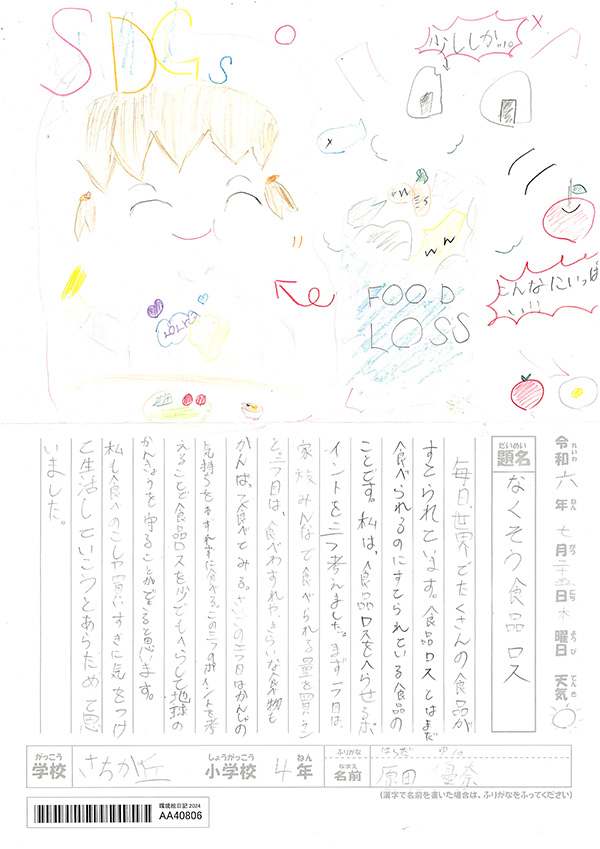 SDGs
少ししか...
こんなにいっぱい!!
FOOD
LOSS
令和六年七月二十五日木曜日 天気
れいわ ねん がつ にち ようび てんき
だいめい
題名
なくそう食品ロス
毎日、世界でたくさんの食品が
すてられています。食品ロスとはまだ
食べられるのにすてられている食品の
ことです。私は、食品ロスをへらせるポ
イントを三つ考えました。まず一つ目は、
家族みんなで食べられる量を買うこ
と。二つ目は、食べわすれや、きらいな食物も
かんばって食べてみる。さいごの三つ目はかんしゃの
気持ちをわすれずに食べるこの三つのポイントを考
えることで食品ロスを少しでもへらして地球の
かんきょうを守ることができると思います。
私も食べのこしや買いすぎに気をつけ
て生活していこうとあらためて思
いました。
がっこう
学校
さちが丘
しょうがっこう
小学校
4
ねん
年
ふりがな
はらだ
なまえ
名前
原田 優奈
(漢字で名前を書いた場合は、ふりがなをふってください)
環境絵日記2024
AA40806